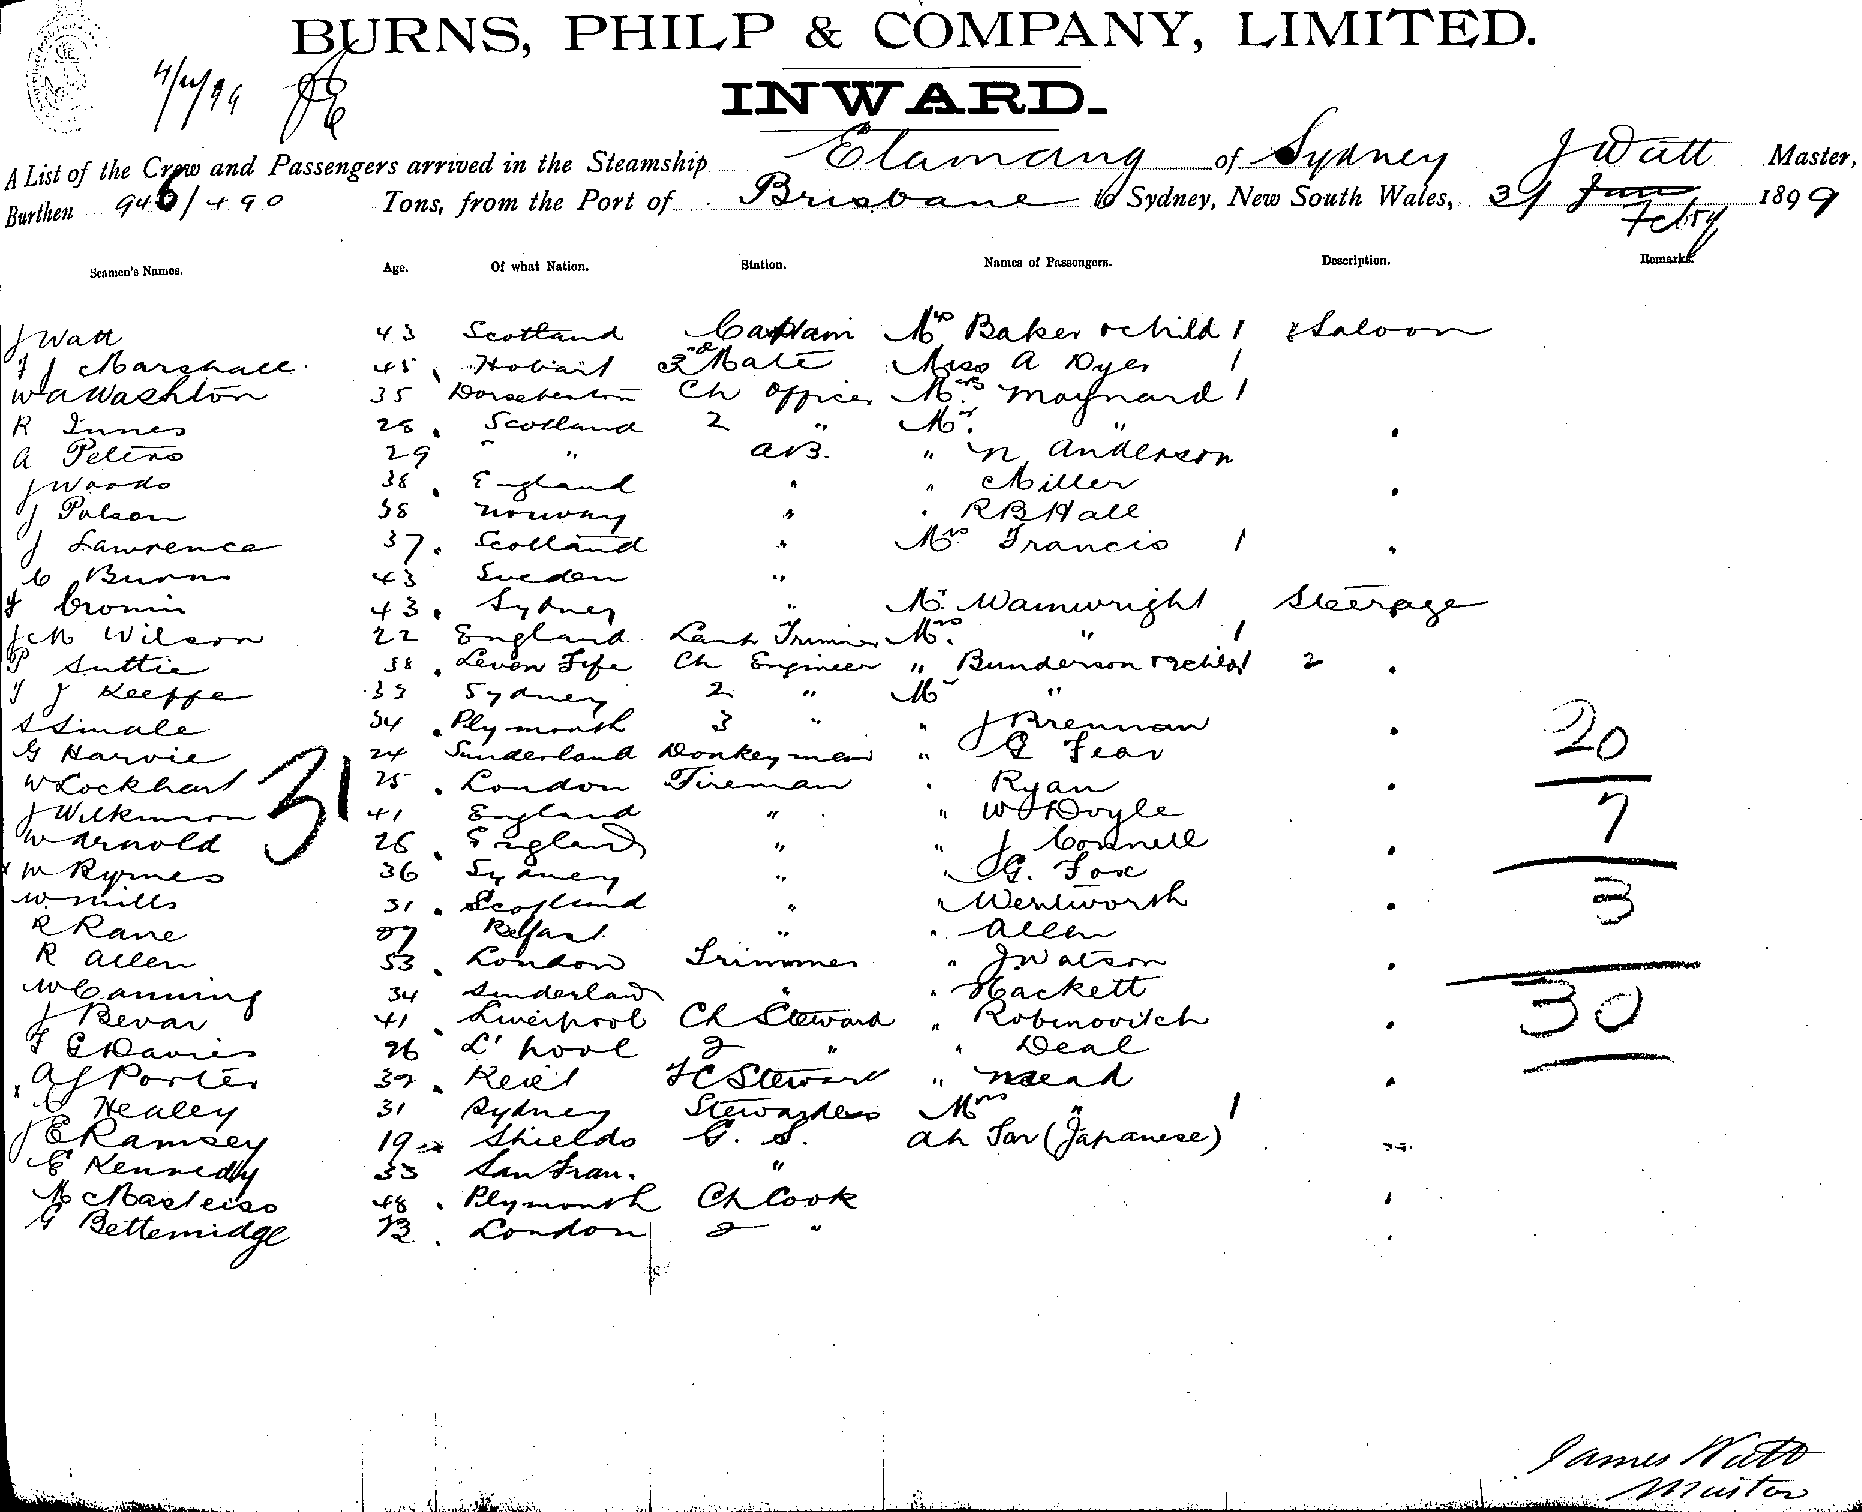 BURNS, PHILP & COMPANY, LIMITED.
INWARD.
A List of the Crew and Passengers arrived in the Steamship Elamang of Sydney J Watt Master,
Burthen 946/490 Tons, from the Port of Brisbane to Sydney, New South Wales, Feby 1899
Seamen's Names. Age. Of what Nation. Station. Names of Passengers. Description. Remarks.
J Watt 43 Scotland Captain Mrs Baker & child 1 Saloon
J Marshall 45 Hobart Mate Miss A Dyer 1
W A Washton 35 Ch Officer Mrs Maynard 1
R Innes 28 Scotland 2 " Mr "
A Peters 29 " " AB. " N Anderson
J Woods 38 England " " Miller
J Polson 38 Norway " " R B Hall
J Lawrence 37 Scotland " Mrs Francis 1
C Burns 43 Sweden "
Cronin 43 Sydney " Mr Wainwright Steerage
Wilson 22 England Lamp Trimmer Mrs " 1
P Suttie 38 Leven Fife Ch Engineer " Bunderson 2
J Keeffe 33 Sydney 2 " Mr "
S Smale 34 Plymouth 3 " " J Brennan
20
G Harvie 24 Sunderland Donkeyman " G Fear
W Lockhart 25 London Fireman " Ryan
31
J Wilkinson 41 England " " W Doyle
7
W Arnold 26 England " " J Connell
W Byrnes 36 Sydney " " G. Fox
W Mills 31 Scotland " " Wentworth
3
R Kane 37 Belfast " " Allen
R Allen 53 London Trimmer " J Watson
W Canning 34 Sunderland " " Hackett
30
J Bevan 41 Liverpool Ch Steward " Robinovitch
F G Davies 26 L'pool 2 " " Deal
A J Porter 39 F C Steward " Mead
Healey 31 Sydney Stewardess Mrs " 1
J E Ramsey 19 Shields G. S. Ah Sar (Japanese)
E Kennedy 33 San Fran. "
48 Plymouth Ch Cook
G Bettemidge London 2 "
James Watt
Master